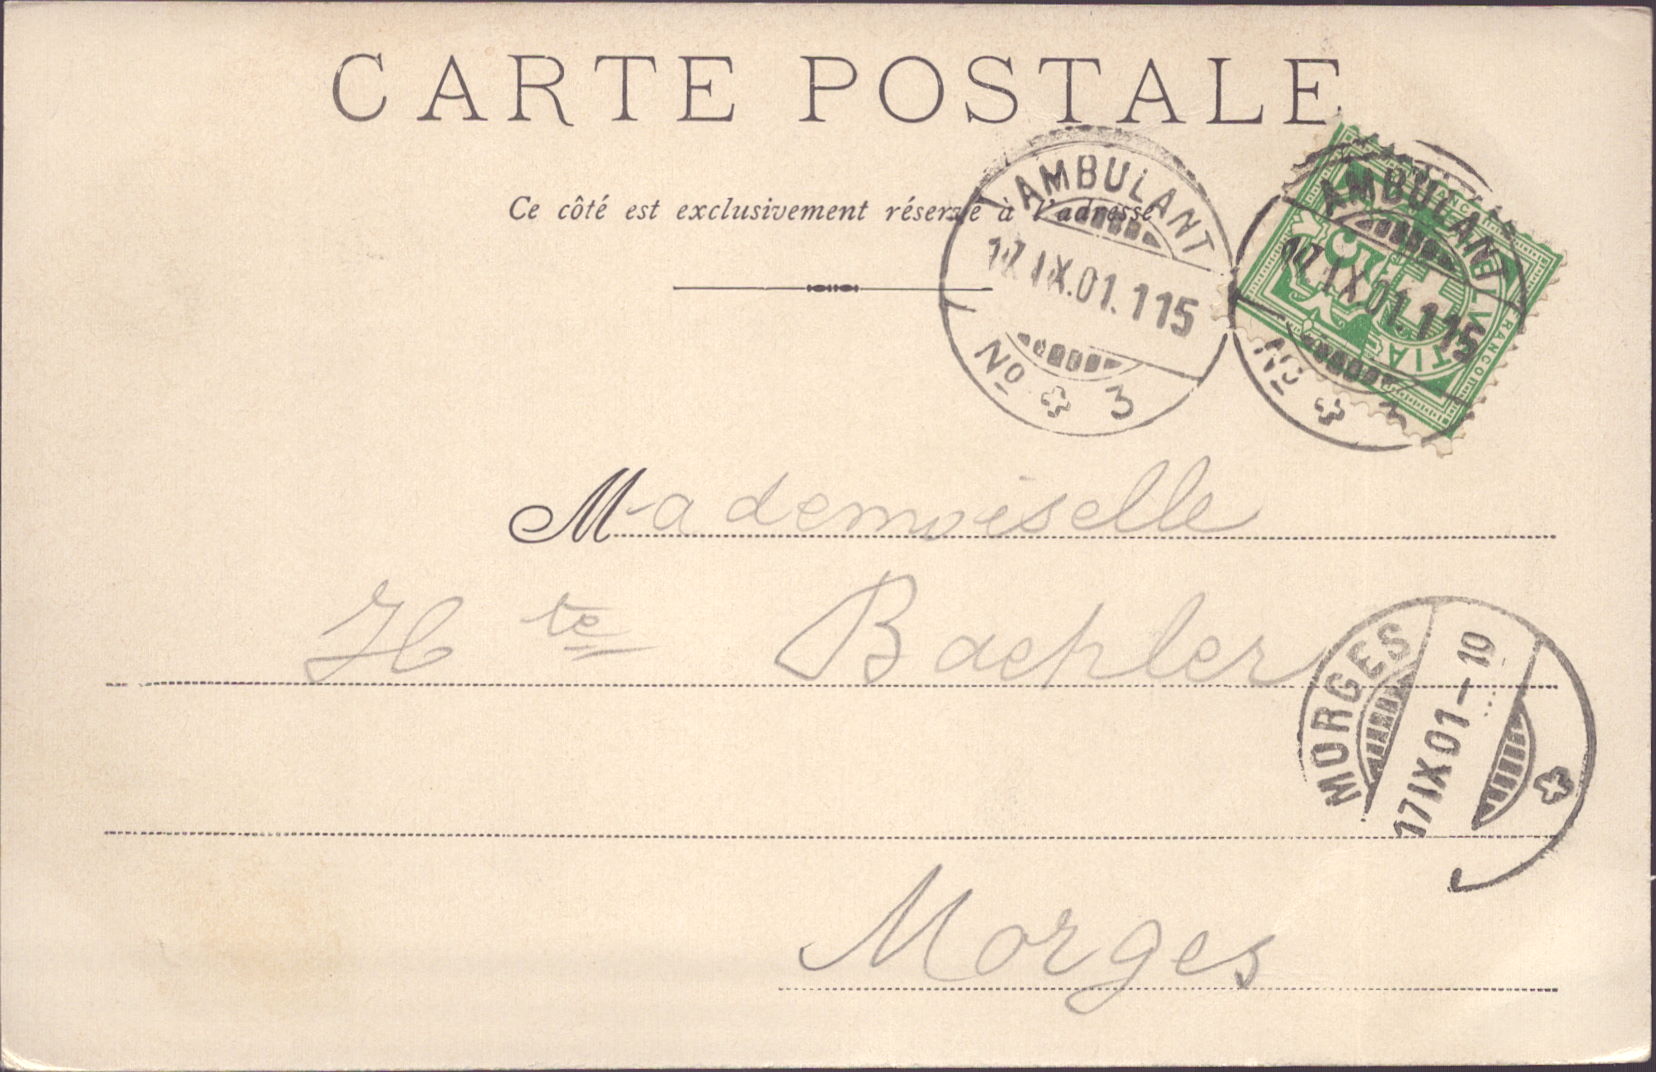 CARTE POSTALE
Ce côté est exclusivement réservé à l'adresse
AMBULANT
17.IX.01.115
No 3
AMBULANT
17.IX.01.115
No 3
HELVETIA
FRANCO
Mademoiselle
Hte Baehler
MORGES
17 IX 01-10
Morges